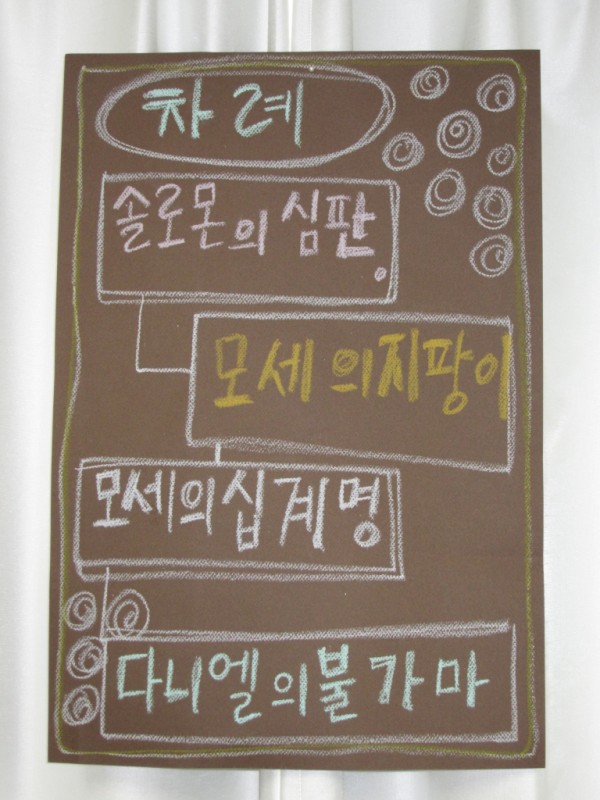 차례
솔로몬의 심판
모세의지팡이
모세의십계명
다니엘의불가마